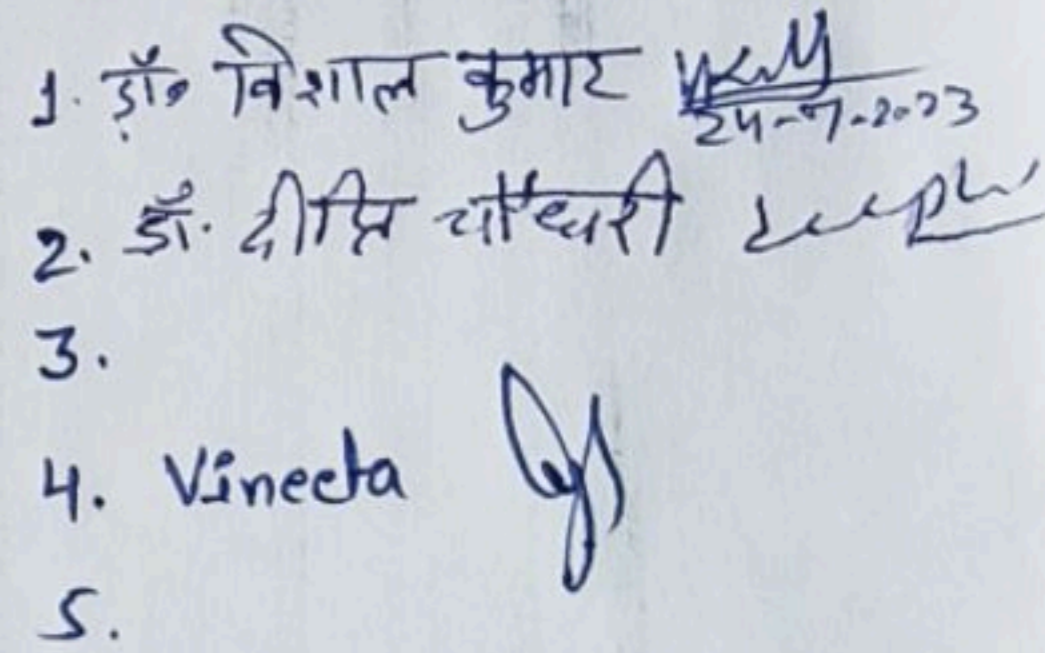 1. डॉ० विशाल कुमार
24-7-2023
2. डॉ. दीप्ति चौधरी
3.
4. Vineeta
5.